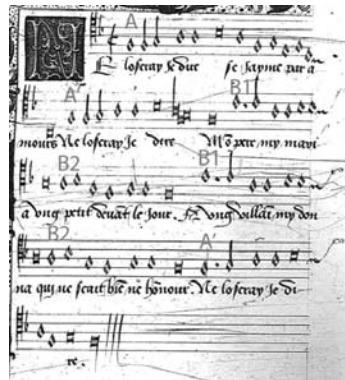 A
NE loseray Je dire se Jayme par a
A' B1
mours Ne loseray Je dire Mõ pere my mari
B2 B1
a vng petit deuãt le Jour. Et vng villaĩ my don
B2 A'
na qui ne scait biẽ ne hõnour. Ne loseray Je di
re.